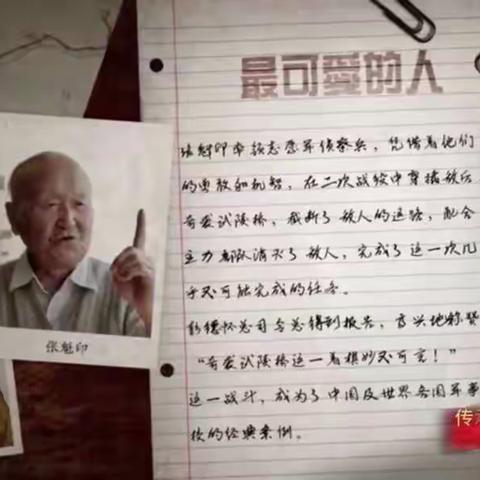 最可愛的人
张魁印率领志愿军侦察兵，凭借着他们
的勇敢和机智，在二次战役中穿插敌后
奇袭武陵桥，截断了敌人的退路，配合
主力部队消灭了敌人，完成了这一次几
乎不可能完成的任务。
彭德怀总司令总得到报告，高兴地称赞
“奇袭武陵桥这一着棋妙不可言！”
这一战斗，成为了中国及世界各国军事
校的经典案例。
张魁印
传